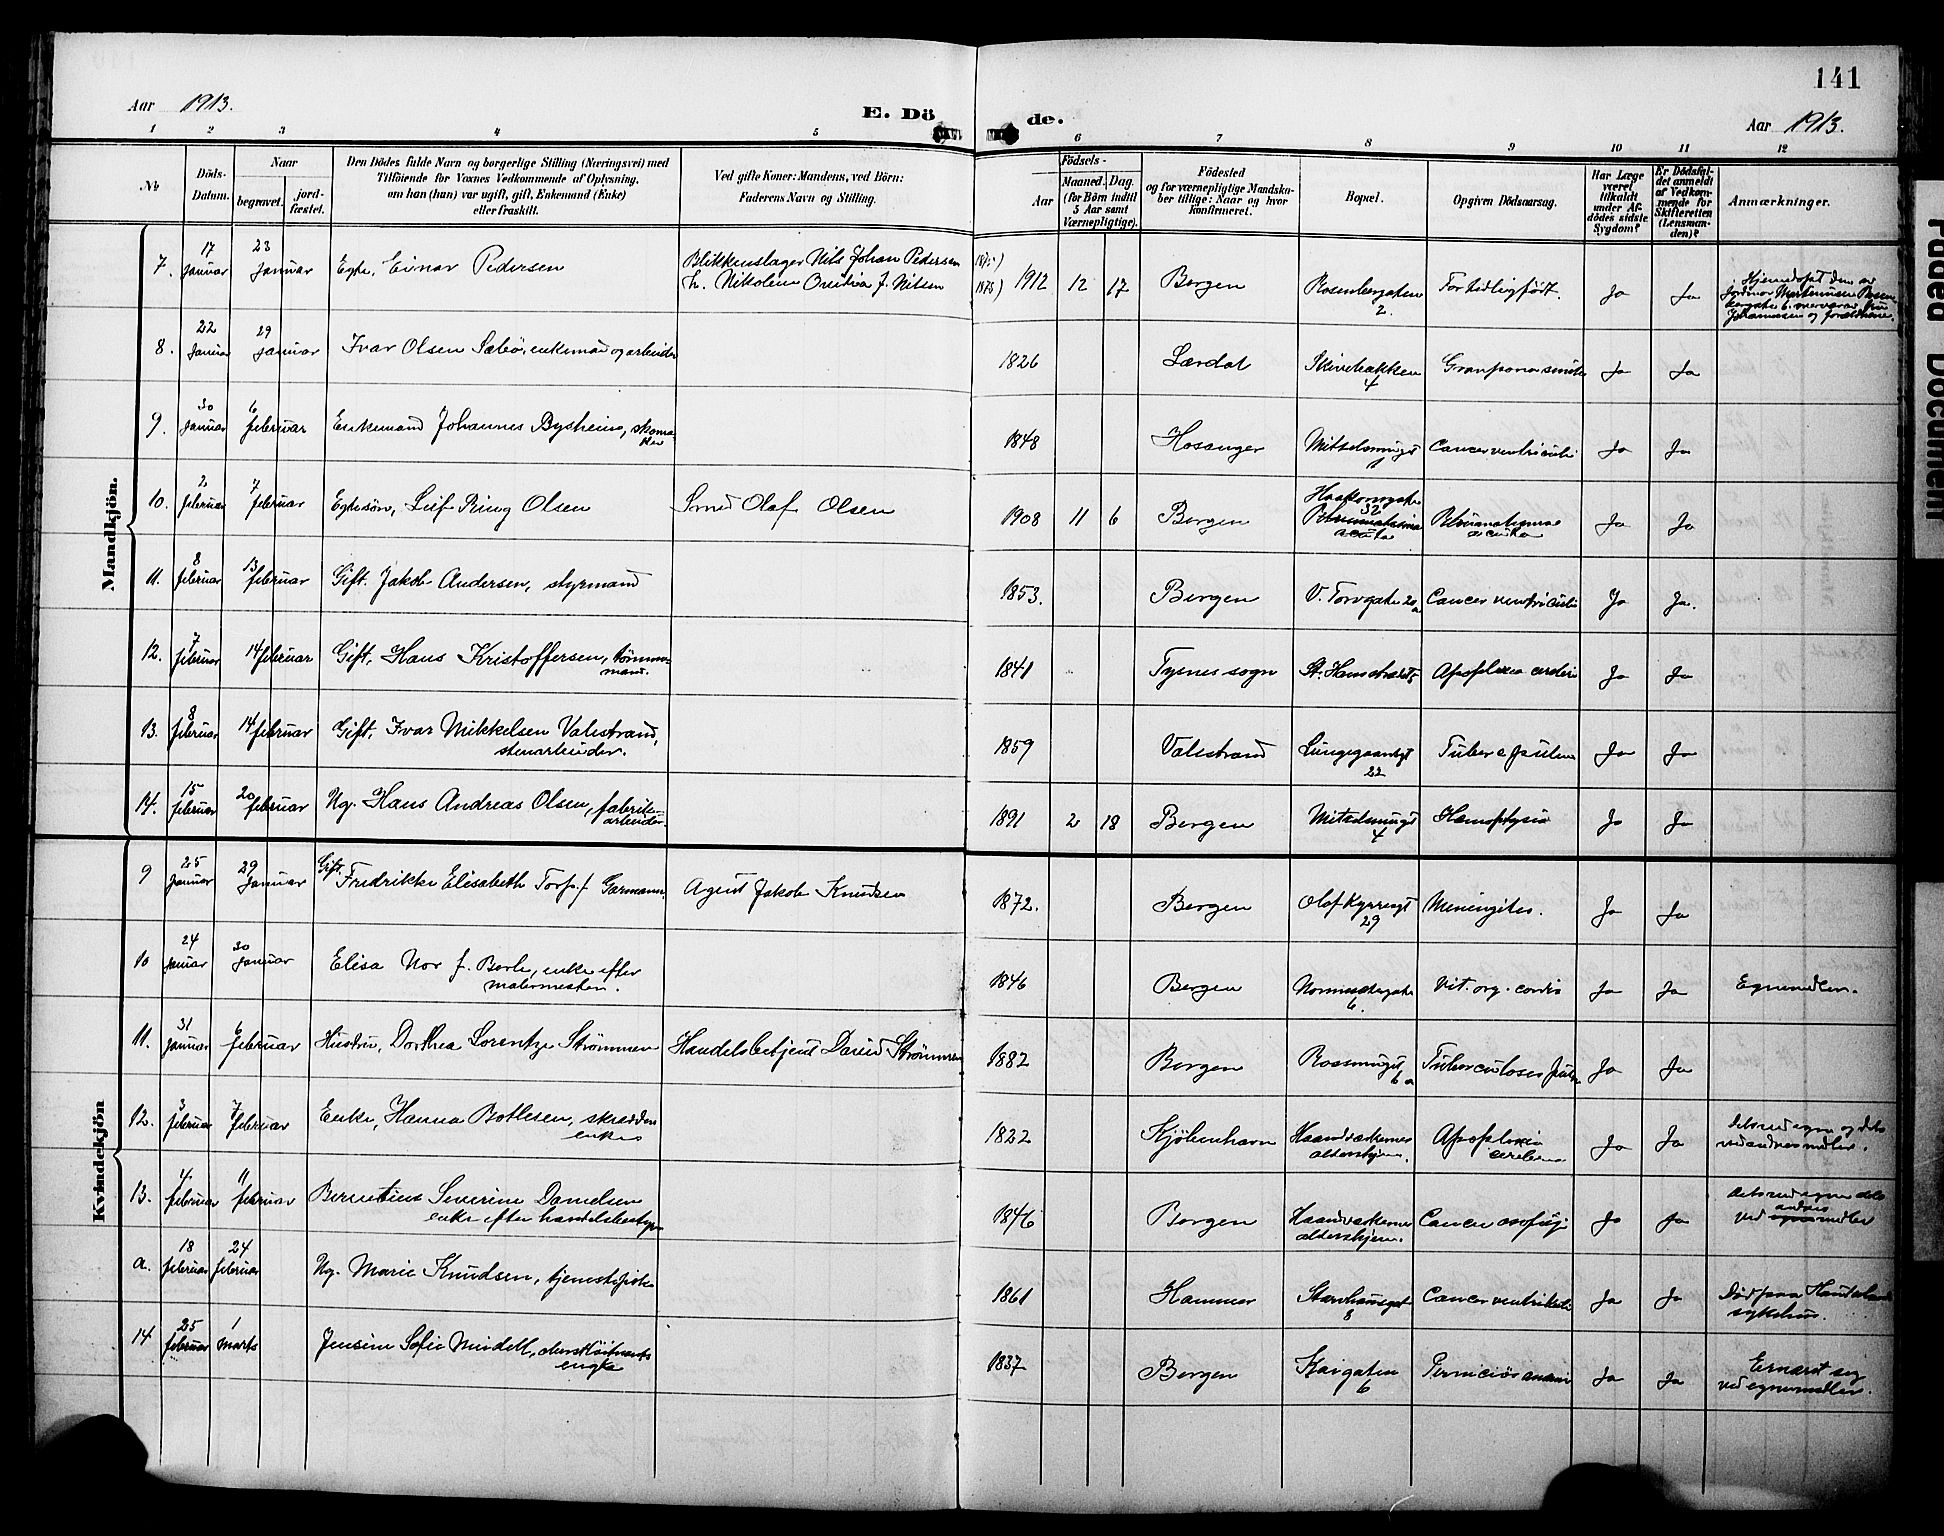 141
Aar 1913.
E. Dö de.
Aar 1913.
1 2 3 4 5 6 7 8 9 10 11 12
No
Döds-Datum.
Naar
begravet.
jord-fæstet.
Den Dödes fulde Navn og borgerlige Stilling (Næringsvei) med
Tilföiende for Voxnes Vedkommende af Oplysning,
om han (hun) var ugift, gift, Enkemand (Enke)
eller fraskilt.
Ved gifte Koner: Mandens, ved Börn:
Faderens Navn og Stilling.
Födsels-
Aar
Maaned. Dag.
(for Börn indtil
5 Aar samt
Værnepligtige).
Födested
og for værnepligtige Mandska-
ber tillige: Naar og hvor
konfirmeret.
Bopæl.
Opgiven Dödsaarsag.
Har Læge
været
tilkaldt
under Af-
dödes sidste
Sygdom?
Er Dödsfal-
det anmeldt
af Vedkom-
mende for
Skifteretten
(Lensman-
den)?
Anmærkninger.
Mandkjön.
7. 17 januar 23 januar Egte, Einar Pedersen Blikkenslager Nils Johan Pedersen 1912 12 17 Bergen Rosenbergaten 2. For tidlig født. Ja Ja
8. 22 januar 29 januar Ivar Olsen Sæbø, enkemand og arbeider 1826 Lærdal Skivebakken 4 Ja Ja
9. 30 januar 6 februar Enkemand Johannes Bysheim, skomaker 1848 Hosanger Cancer ventriculi Ja Ja
10. 2 februar 7 februar Egtesøn, Leif Ring Olsen Smed Olaf Olsen 1908 11 6 Bergen Haakonsgaten 32 Ja Ja
11. 8 februar 13 februar Gift. Jakob Andersen, styrmand 1853. Bergen V. Torvgate 20a Cancer ventriculi Ja Ja.
12. 7 februar 14 februar Gift, Hans Kristoffersen, tømmermand. 1841 Tysnes sogn Ja Ja
13. 8 februar 14 februar Gift, Ivar Mikkelsen Valestrand, stenarbeider. 1859 Valestrand 22 Ja Ja
14. 15 februar 20 februar Ug. Hans Andreas Olsen, fabrikarbeider. 1891 2 18 Bergen 4 Hæmoptysis Ja Ja
Kvindekjön
9 25 januar 29 januar Gift. Fredrikke Elisabeth Torp f. Garmann, Agent Jakob Knudsen 1872. Bergen Olaf Kyrresgt 29 Meningites. Ja Ja
10 24 januar 30 januar Elisa Nor f. enke efter malermester. 1846 Bergen 6. Vit. org. cordis Ja Ja Egnemidler.
11. 31 januar 6 februar Hustru, Dorthea Lorentze Strømmen Handelsbetjent David Strømmen 1882 Bergen 6a Ja Ja
12. 3 februar 7 februar Enke, Hanna Botlesen, skrædderenke 1822 Kjøbenhavn Haandværkernes aldershjem. Apoplexia Ja Ja
13. 4. februar 11 februar Severine Danielsen enke efter 1846 Bergen Haandværkernes aldershjem. Cancer Ja Ja
a. 18 februar 24 februar Ug. Marie Knudsen, tjenestepike 1861 Hammer 8 Cancer ventriculi Ja Ja Død paa Haukeland sykehus.
14 25 februar 1 marts Jensine Sofie enke 1837 Bergen 6 Perniciøs anæmi Ja Ja Ernæret sig ved egnemidler.
Faded Document